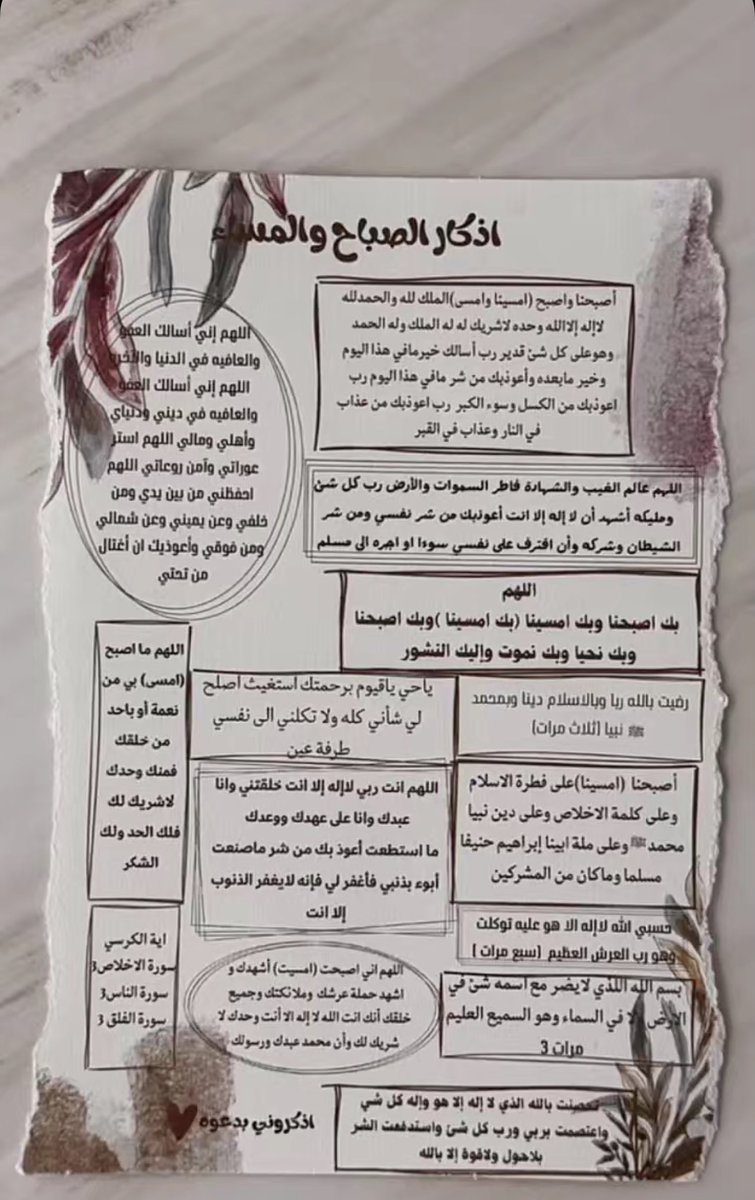 اذكار الصباح والمساء
أصبحنا واصبح (امسينا وامسى)الملك لله والحمدلله
لاإله إلاالله وحده لاشريك له له الملك وله الحمد
وهوعلى كل شئ قدير رب أسالك خيرمافي هذا اليوم
وخير مابعده وأعوذبك من شر مافي هذا اليوم رب
اعوذبك من الكسل وسوء الكبر رب اعوذبك من عذاب
في النار وعذاب في القبر
اللهم إني أسالك العفو
والعافيه في الدنيا والآخره
اللهم إني أسالك العفو
والعافيه في ديني ودنياي
وأهلي ومالي اللهم استر
عوراتي وآمن روعاتي اللهم
احفظني من بين يدي ومن
خلفي وعن يميني وعن شمالي
ومن فوقي وأعوذبك ان أغتال
من تحتي
اللهم عالم الغيب والشهادة فاطر السموات والأرض رب كل شئ
ومليكه أشهد أن لا إله إلا انت أعوذبك من شر نفسي ومن شر
الشيطان وشركه وأن اقترف على نفسي سوءا او اجره الى مسلم
اللهم
بك اصبحنا وبك امسينا (بك امسينا )وبك اصبحنا
وبك نحيا وبك نموت وإليك النشور
اللهم ما اصبح
(امسى) بي من
نعمة أو باحد
من خلقك
فمنك وحدك
لاشريك لك
فلك الحد ولك
الشكر
ياحي ياقيوم برحمتك استغيث اصلح
لي شأني كله ولا تكلني الى نفسي
طرفة عين
رضيت بالله ربا وبالاسلام دينا وبمحمد
ﷺ نبيا (ثلاث مرات)
اللهم انت ربي لاإله إلا انت خلقتني وانا
عبدك وانا على عهدك ووعدك
ما استطعت أعوذ بك من شر ماصنعت
أبوء بذنبي فأغفر لي فإنه لايغفر الذنوب
إلا انت
أصبحنا (امسينا)على فطرة الاسلام
وعلى كلمة الاخلاص وعلى دين نبيا
محمدﷺ وعلى ملة ابينا إبراهيم حنيفا
مسلما وماكان من المشركين
حسبي الله لاإله الا هو عليه توكلت
وهو رب العرش العظيم (سبع مرات )
اية الكرسي
سورة الاخلاص3
سورة الناس3
سورة الفلق 3
اللهم اني اصبحت (امسيت) أشهدك و
اشهد حملة عرشك وملائكتك وجميع
خلقك أنك انت الله لا إله الا أنت وحدك لا
شريك لك وأن محمد عبدك ورسولك
بسم الله اللذي لايضر مع اسمه شئ في
الارض ولا في السماء وهو السميع العليم
3 مرات
تحصنت بالله الذي لا إله إلا هو وإله كل شي
واعتصمت بربي ورب كل شئ واستدفعت الشر
بلاحول ولاقوة إلا بالله
اذكروني بدعوه